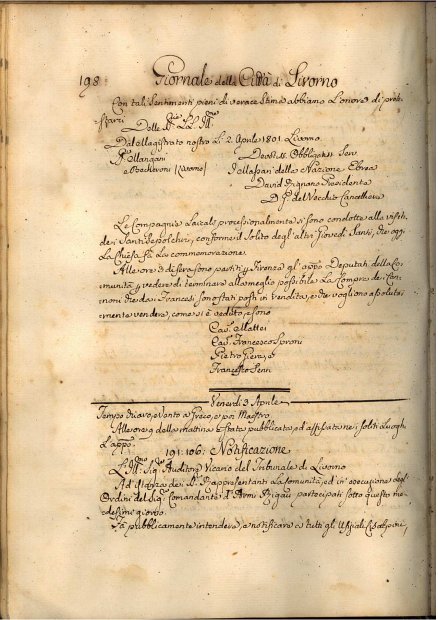 198. Giornale della Città di Livorno
Con tali Sentimenti pieni di verace Stima abbiamo l'onore di prot-
starci
Delle
Dal Magistrato nostro Li 2 Aprile 1801. Livorno
Devotiss. Obbligatiss. Serv.
e Bocheroni (Livorno) I Massari della Nazione Ebrea
David Presidente
D. G. del Vecchio Cancelliere
Le Compagnie Laicali processionalmente si sono condotte alla visita
dei Santi Sepolcri, conforme il Solito degl'altri Giovedì Santi, che oggi
la Chiesa fà la commemorazione.
Alle ore di sera sono partiti p. Firenze gl'appo. Deputati della Co-
munità p. vedere di terminare alla meglio possibile la Compra dei Can-
noni che dai Francesi sono stati posti in vendita, e che vogliono assoluta-
mente vendere, come si è veduto, e sono
Cav. Mattei
Cav. Francesco Sproni
Pietro
Francesco Senn
Venerdì 3 Aprile
Tempo vento a Greco, e poi Maestro
Alle ore 9 della mattina è stata pubblicata, ed affissa nei soliti Luoghi
L'appo.
191: 106: Notificazione
L'Ill.mo Sig. Auditore Vicario del Tribunale di Livorno
Ad istanza dei SS. Rappresentanti la Comunità, ed in esecuzione degl'
Ordini del Sig. Comandante d'Armi Rigau partecipati sotto questo me-
desimo giorno.
Fà pubblicamente intendere, e notificare a tutti gli Uffiziali Cisalpini,